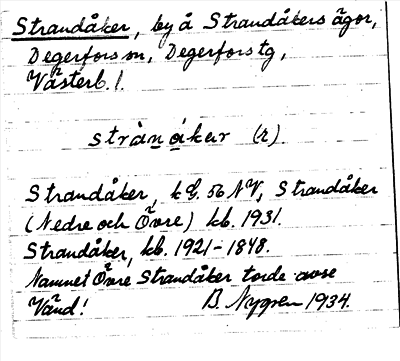 Strandåker, by å Strandåkers ägor,
Degerfors sn, Degerfors tg,
Västerb. l.
strànákar (r).
Strandåker, k G. 56 NV, Strandåker
(Nedre och Övre) kb. 1931.
Strandåker, kb. 1921-1878.
Namnet Övre Strandåker torde avse
Vänd! B. Nygren 1934.